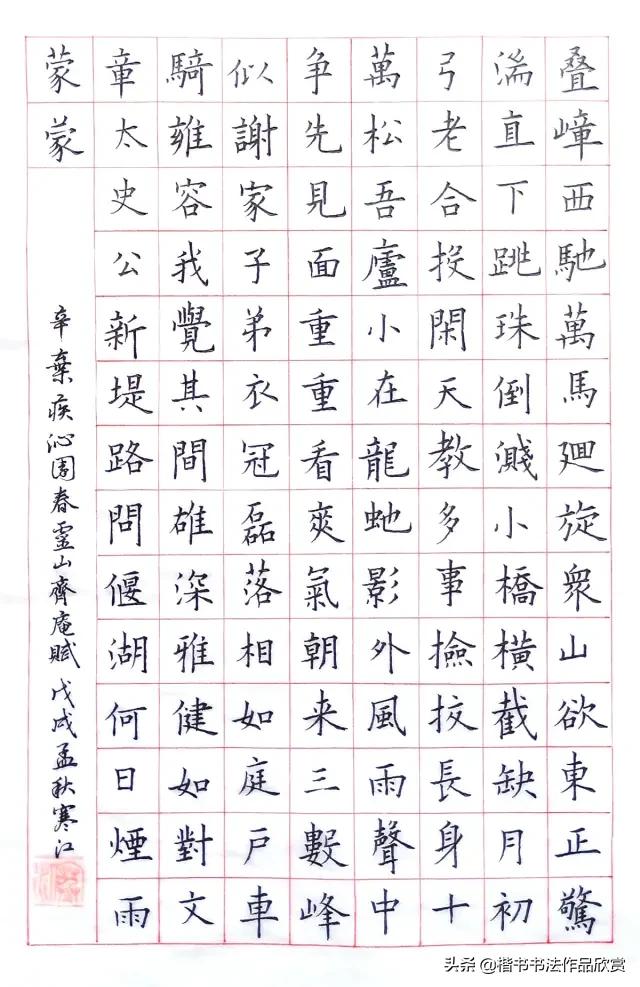 叠嶂西馳萬馬廻旋衆山欲東正驚
湍直下跳珠倒濺小橋橫截缺月初
弓老合投閑天教多事撿挍長身十
萬松吾廬小在龍虵影外風雨聲中
争先見面重重看爽氣朝来三數峰
似謝家子弟衣冠磊落相如庭戸車
騎雍容我覺其間雄深雅健如對文
章太史公新堤路問偃湖何日煙雨
蒙蒙
辛棄疾沁園春霊山齊庵賦 戊戌孟秋寒江
头条 @楷书书法作品欣赏